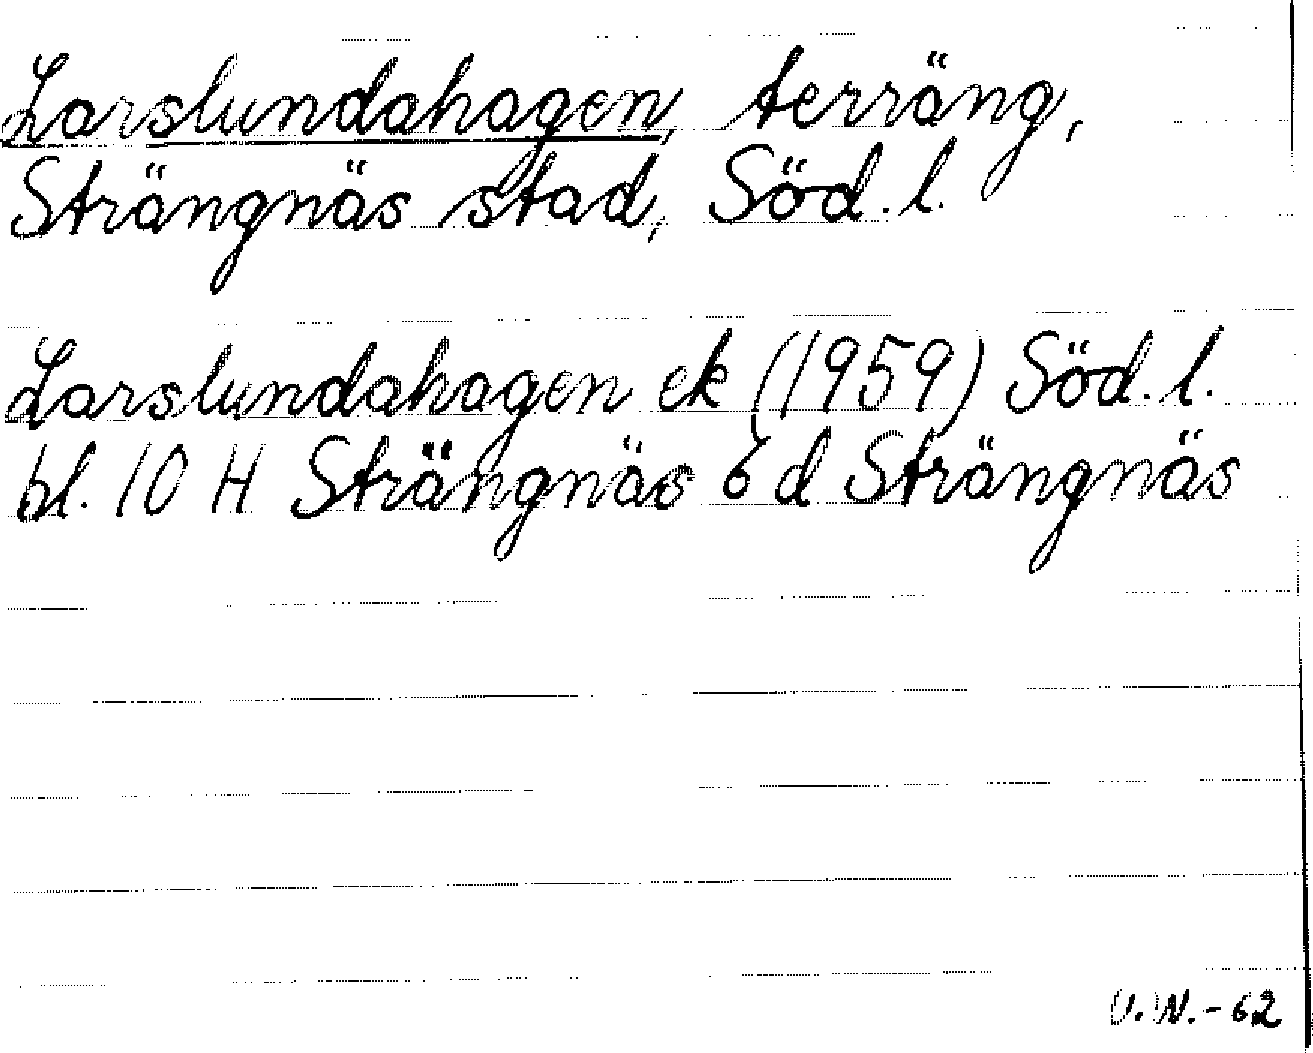 Larslundahagen, terräng,
Strängnäs stad, Söd. l.
Larslundahagen ek (1959) Söd. l.
bl. 10 H Strängnäs 6 d Strängnäs
U.W.-62